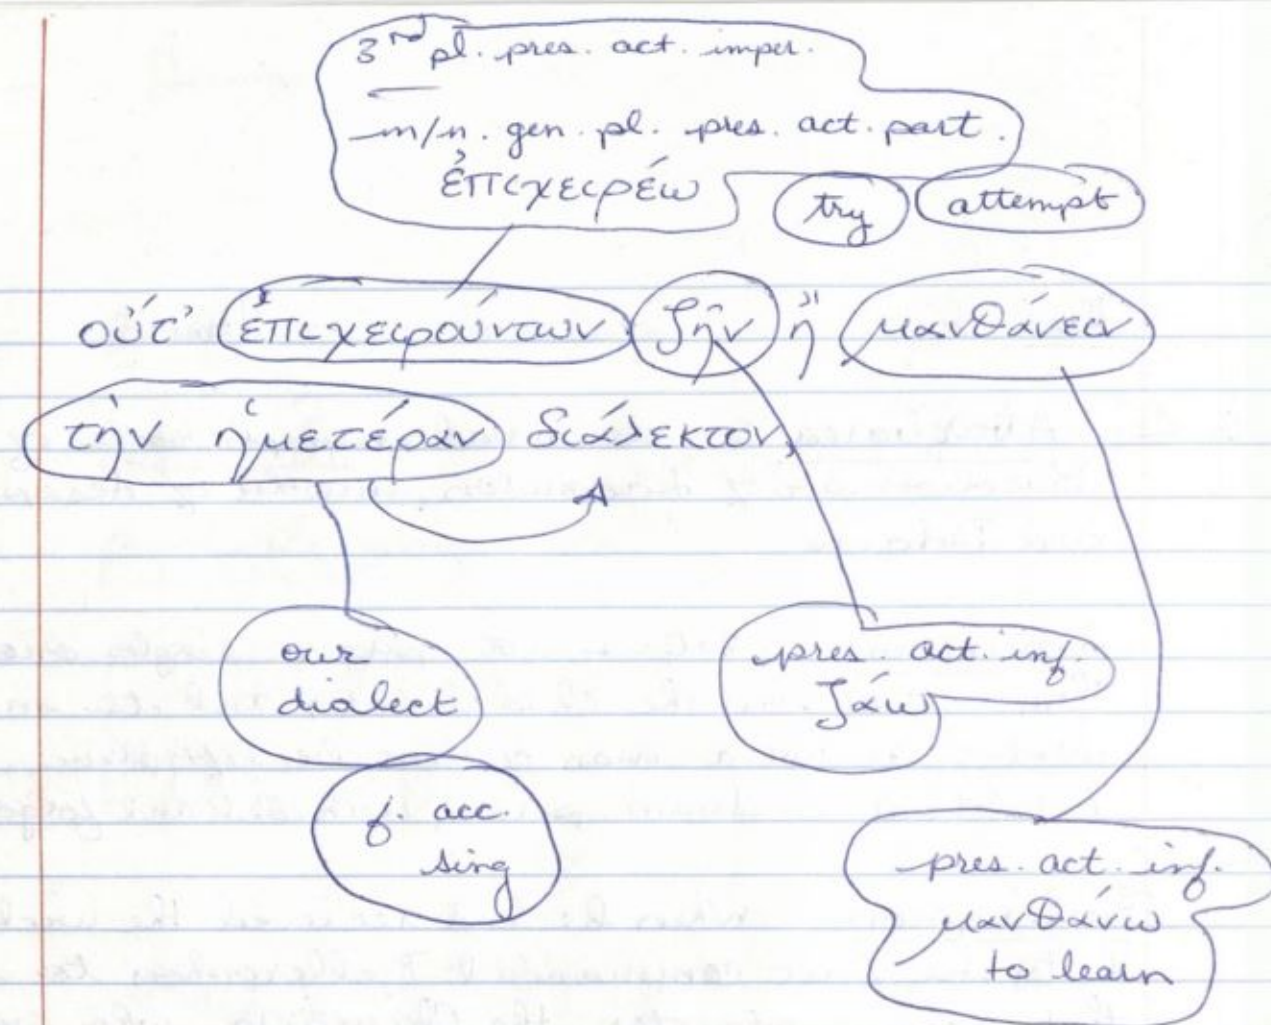 3rd pl. pres. act. imper.
m/n. gen. pl. pres. act. part.
ἐπιχειρέω
try
attempt
οὔτ' ἐπιχειρούντων ζῆν ἢ μανθάνειν
τὴν ἡμετέραν διάλεκτον,
our
dialect
f. acc.
sing
pres. act. inf.
ζάω
pres. act. inf.
μανθάνω
to learn